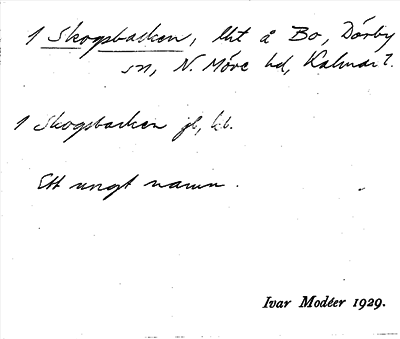 1 Skogsbacken, lht å Bo, Dörby
sn, N. Möre hd, Kalmar l.
1 Skogsbacken jb, kb.
Ett ungt namn.
Ivar Modéer 1929.